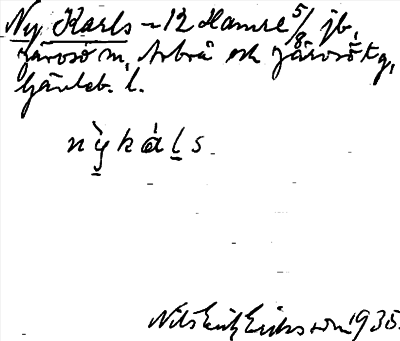 Ny Karls – 12 Hamre 5/8 jb,
Järvsö m, Arbrå och Järvsö tg,
Gävleb. l.
nỳkáls
Nils Erik Eriksson 1935.